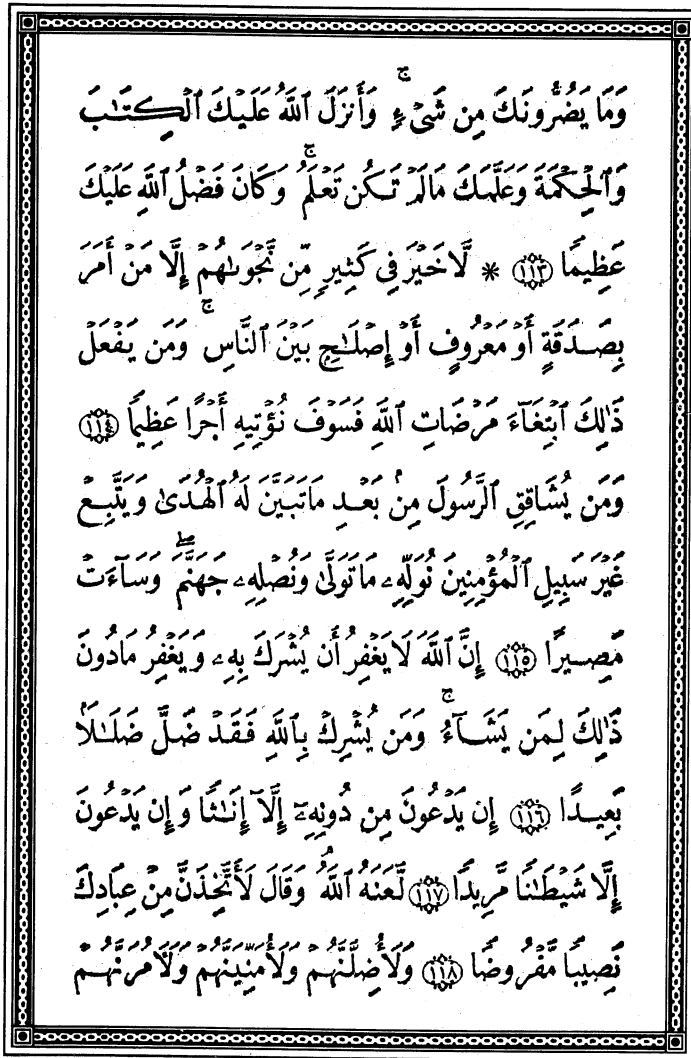 وَمَا يَضُرُّونَكَ مِن شَىْءٍ ۚ وَأَنزَلَ ٱللَّهُ عَلَيْكَ ٱلْكِتَٰبَ
وَٱلْحِكْمَةَ وَعَلَّمَكَ مَا لَمْ تَكُن تَعْلَمُ ۚ وَكَانَ فَضْلُ ٱللَّهِ عَلَيْكَ
عَظِيمًا ١١٣ * لَّا خَيْرَ فِى كَثِيرٍ مِّن نَّجْوَىٰهُمْ إِلَّا مَنْ أَمَرَ
بِصَدَقَةٍ أَوْ مَعْرُوفٍ أَوْ إِصْلَٰحٍۭ بَيْنَ ٱلنَّاسِ ۚ وَمَن يَفْعَلْ
ذَٰلِكَ ٱبْتِغَآءَ مَرْضَاتِ ٱللَّهِ فَسَوْفَ نُؤْتِيهِ أَجْرًا عَظِيمًا ١١٤
وَمَن يُشَاقِقِ ٱلرَّسُولَ مِنۢ بَعْدِ مَا تَبَيَّنَ لَهُ ٱلْهُدَىٰ وَيَتَّبِعْ
غَيْرَ سَبِيلِ ٱلْمُؤْمِنِينَ نُوَلِّهِۦ مَا تَوَلَّىٰ وَنُصْلِهِۦ جَهَنَّمَ ۖ وَسَآءَتْ
مَصِيرًا ١١٥ إِنَّ ٱللَّهَ لَا يَغْفِرُ أَن يُشْرَكَ بِهِۦ وَيَغْفِرُ مَا دُونَ
ذَٰلِكَ لِمَن يَشَآءُ ۚ وَمَن يُشْرِكْ بِٱللَّهِ فَقَدْ ضَلَّ ضَلَٰلًۢا
بَعِيدًا ١١٦ إِن يَدْعُونَ مِن دُونِهِۦٓ إِلَّآ إِنَٰثًا وَإِن يَدْعُونَ
إِلَّا شَيْطَٰنًا مَّرِيدًا ١١٧ لَّعَنَهُ ٱللَّهُ ۘ وَقَالَ لَأَتَّخِذَنَّ مِنْ عِبَادِكَ
نَصِيبًا مَّفْرُوضًا ١١٨ وَلَأُضِلَّنَّهُمْ وَلَأُمَنِّيَنَّهُمْ وَلَءَامُرَنَّهُمْ